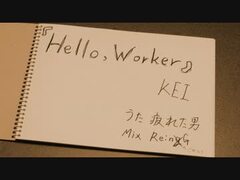 『Hello, Worker』
KEI
うた 疲れた男
Mix Reing